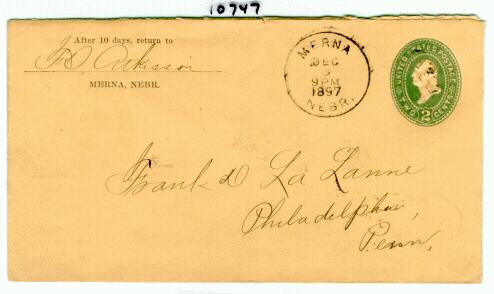 10747
After 10 days, return to
Atkisson
MERNA, NEBR.
MERNA
DEC
3
9PM
1897
NEBR.
UNITED STATES POSTAGE
TWO 2 CENTS
Frank D La Lanne
Philadelphia,
Penn.